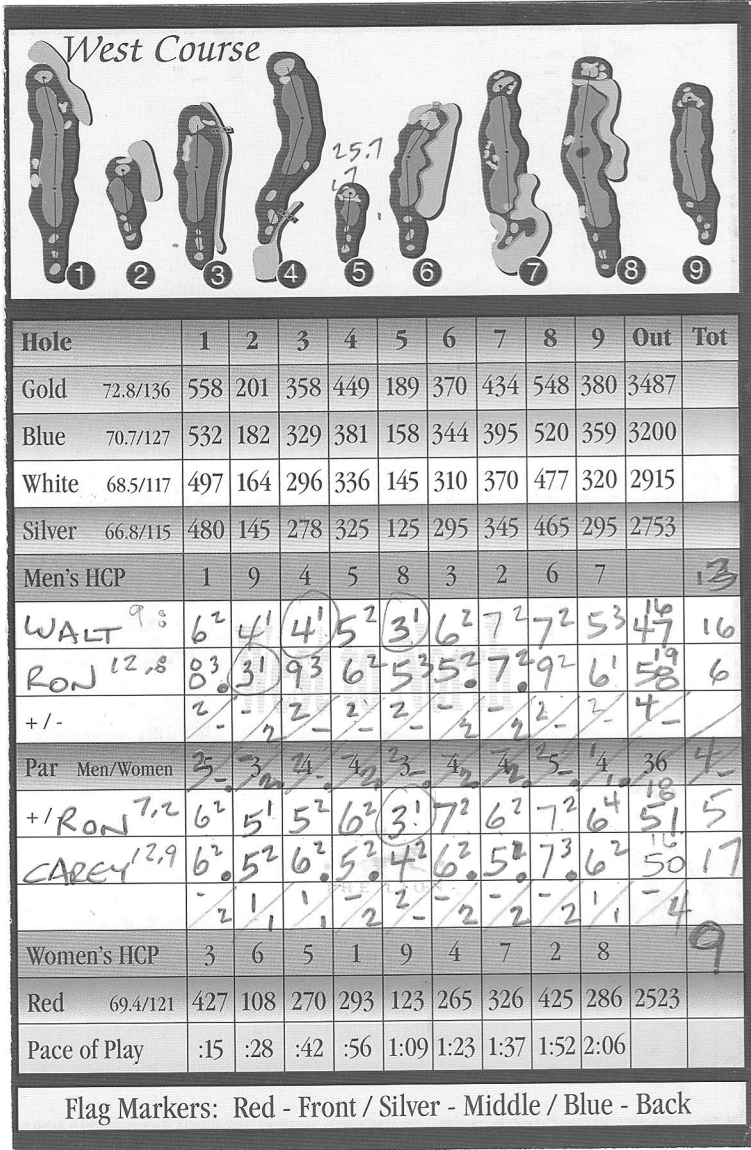 West Course
25.7
17
1 2 3 4 5 6 7 8 9
Hole 1 2 3 4 5 6 7 8 9 Out Tot
Gold 72.8/136 558 201 358 449 189 370 434 548 380 3487
Blue 70.7/127 532 182 329 381 158 344 395 520 359 3200
White 68.5/117 497 164 296 336 145 310 370 477 320 2915
Silver 66.8/115 480 145 278 325 125 295 345 465 295 2753
Men's HCP 1 9 4 5 8 3 2 6 7 13
WALT 9 6² 4¹ 4¹ 5² 3¹ 6² 7² 7² 5³ 16 47 16
RON 12,8 8³ 3¹ 9³ 6² 5³ 5² 7² 9² 6¹ 19 58 6
+/- 2/- -/2 2/- 2/- 2/- -/2 -/2 2/- 2/- 4/-
Par Men/Women 5 3 4 4 3 4 4 5 4 36 4/-
+/RON 7,2 6² 5¹ 5² 6² 3¹ 7² 6² 7² 6⁴ 18 51 5
CAREY 12,9 6² 5² 6² 5² 4² 6² 5² 7³ 6² 16 50 17
-/2 1/1 1/1 -/2 2/- -/2 -/2 -/2 1/1 -/4 9
Women's HCP 3 6 5 1 9 4 7 2 8
Red 69.4/121 427 108 270 293 123 265 326 425 286 2523
Pace of Play :15 :28 :42 :56 1:09 1:23 1:37 1:52 2:06
Flag Markers: Red - Front / Silver - Middle / Blue - Back